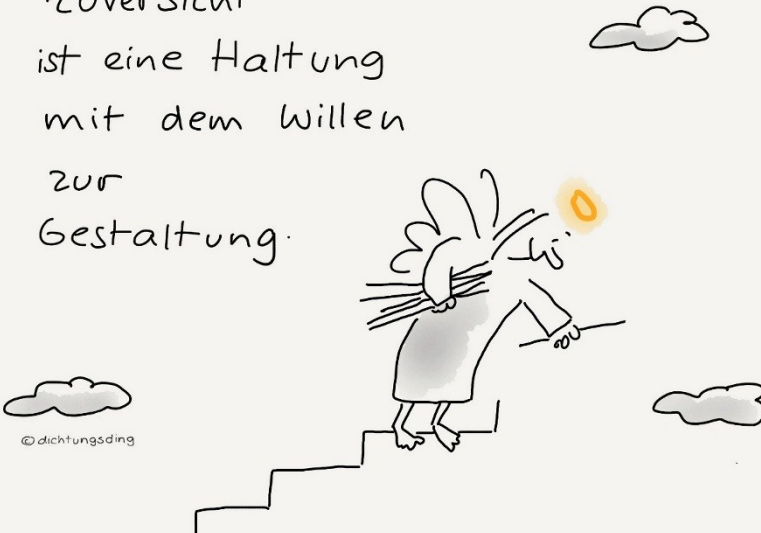 Zuversicht
ist eine Haltung
mit dem Willen
zur
Gestaltung.
©dichtungsding